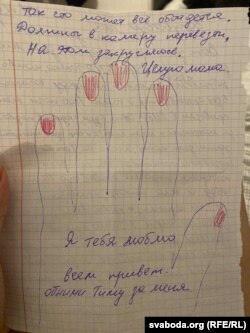 Так что может всё обойдётся.
Должны в камеру перевезти.
На этом закругляюсь.
Целую мама.
Я тебя люблю
всем привет.
обними Тиму за меня
svaboda.org RFE/RL)